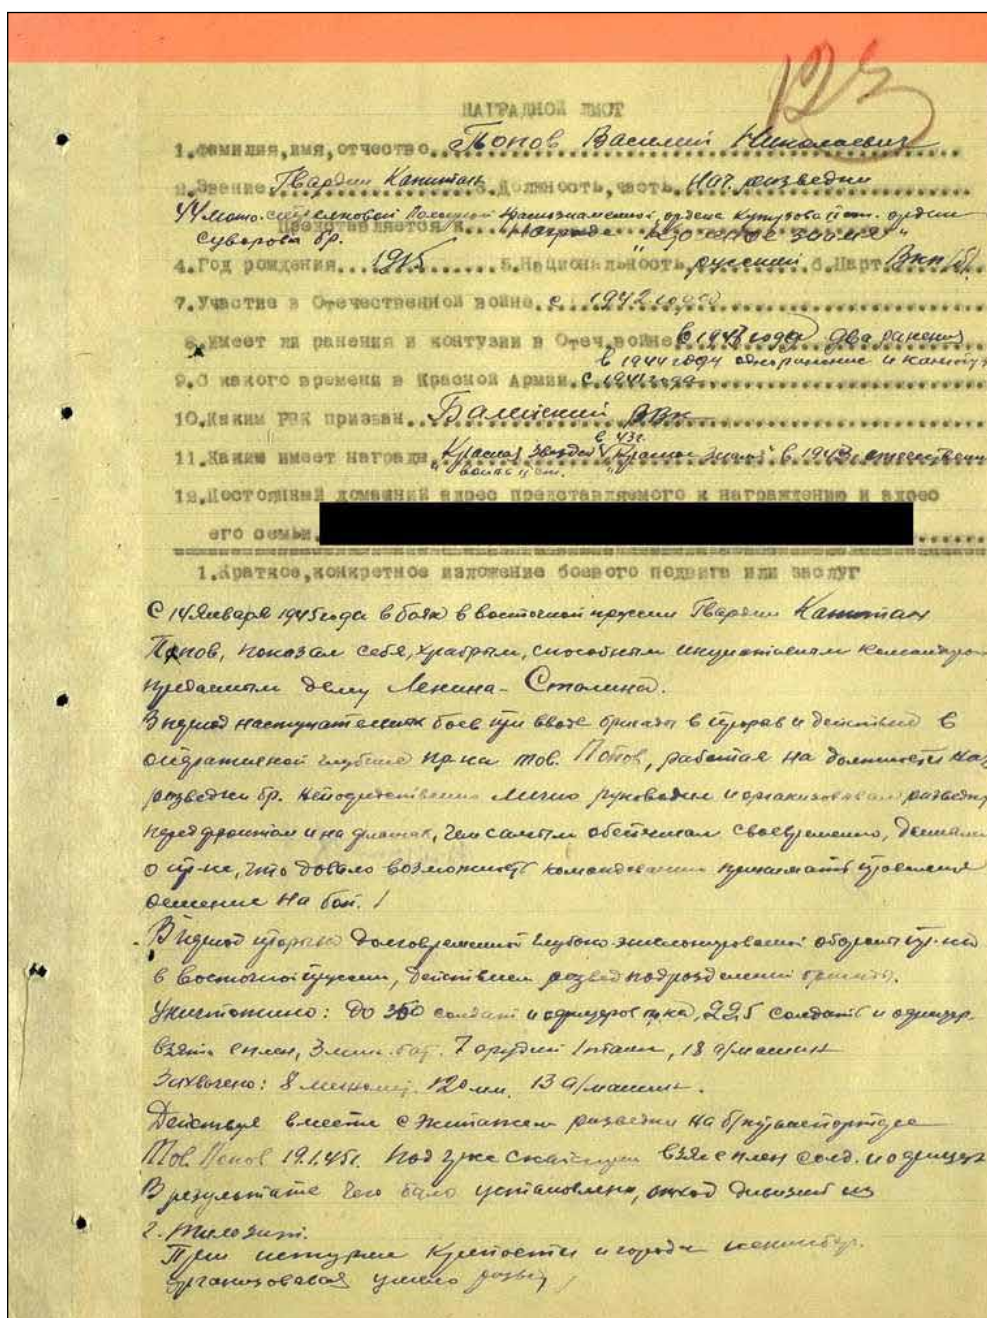 123
НАГРАДНОЙ ЛИСТ
1.Фамилия,имя,отчество Попов Василий Николаевич
2.Звание Гвардии Капитан 3.Должность,часть Нач разведки
44 мото.стрелковой Краснознаменной, ордена Кутузова ордена
Суворова бр.
Представляется к Награде "Красное знамя"
4.Год рождения 1915 5.Национальность русский 6.Парт. Вкп/б/
7.Участие в Отечественной войне с 1942 года
8.Имеет ли ранения и контузии в Отеч.войне в 1943 года два ранения
в 1944 году одно ранение и контуз
9.С какого времени в Красной Армии с 1941 года
10.Каким РВК призван Балейский РВК
11.Какие имеет награды "Красная звезда" в 43г. "Красное знамя" в 1943, отечествен
войны ст.
12.Постоянный домашний адрес представляемого к награждению и адрес
его семьи
1.Краткое,конкретное изложение боевого подвига или заслуг
С 14 Января 1945 года в боях в восточной пруссии Гвардии Капитан
Попов, показал себя, храбрым, способным командиром
преданным делу Ленина-Сталина.
В период наступательных боев при вводе бригады в прорыв и действий в
оперативной глубине пр-ка тов. Попов, работая на должности нач
разведки бр. непосредственно лично руководил и организовывал разведку
перед фронтом и на флангах, тем самым обеспечил своевременно, данными
о пр-ке, что давало возможность командованию принимать
решение на бой.
В период прорыва долговременной глубоко эшелонированной обороны пр-ка
в Восточной пруссии, действием развед подразделений бригады.
Уничтожено: до 350 солдат и офицеров пр-ка, 225 солдат и офицер.
взято в плен, 3 мин. бат. 7 орудий 1 танк, 18 а/машин
Захвачено: 8 миномет. 120 мм, 13 а/машин.
Действуя вместе с экипажем разведки на б/транспортере
Тов. Попов 19.1.45г. взял в плен солд. и офицера
В результате чего было установлено, отход дивизий из
г. Тилозит.
При штурме Крепости и города
организовал умело развед